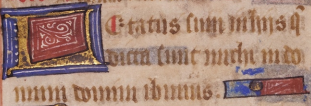 Letatus sum in hiis q̄
dicta sunt michi in do
mum domini ibimus